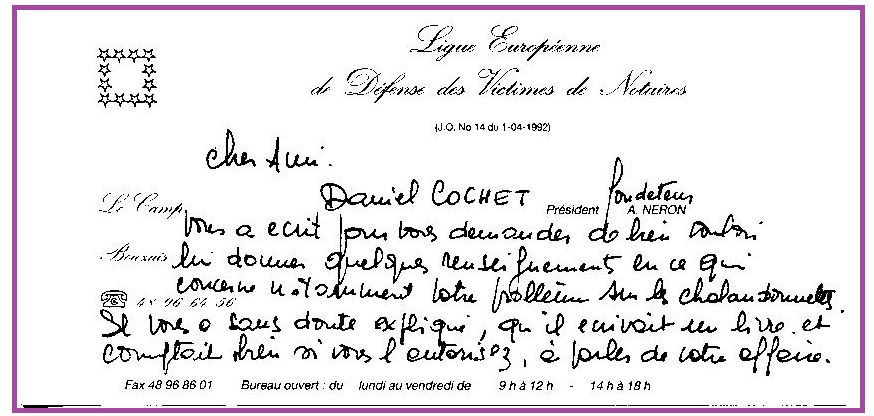 Ligue Européenne
de Défense des Victimes de Notaires
(J.O. No 14 du 1-04-1992)
cher Ami.
Daniel COCHET fondateur
Le Camp
Président A. NERON
vous a ecrit pour vous demander de bien vouloir
Bouzais
lui donner quelques renseignements en ce qui
concerne notamment votre problème sur les chalandonnettes.
48 96 64 56
Il vous a sans doute expliqué, qu'il ecrivait un livre et
comptait bien si vous l'autorisez, à parler de votre affaire.
Fax 48 96 86 01 Bureau ouvert : du lundi au vendredi de 9 h à 12 h - 14 h à 18 h